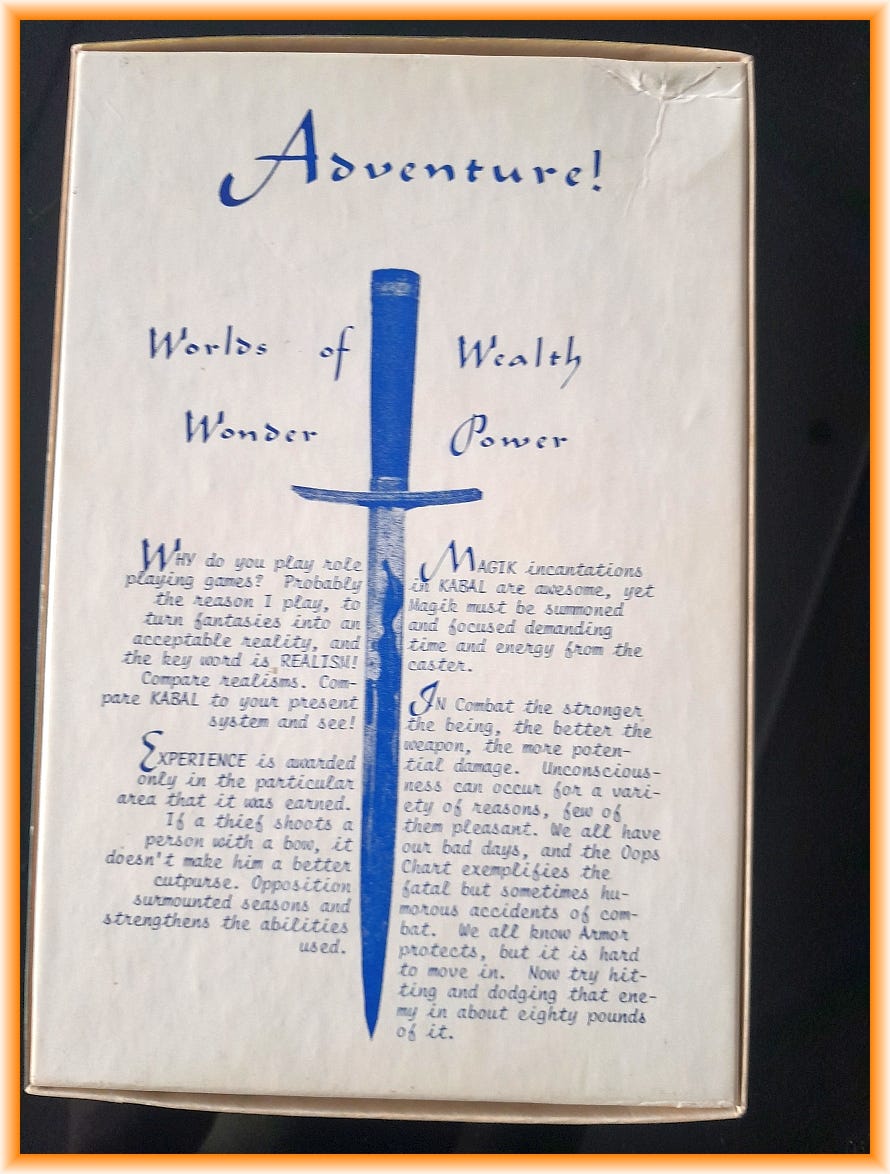 Adventure!
Worlds of Wealth
Wonder Power
WHY do you play role
playing games? Probably
the reason I play, to
turn fantasies into an
acceptable reality, and
the key word is REALISM!
Compare realisms. Com-
pare KABAL to your present
system and see!
EXPERIENCE is awarded
only in the particular
area that it was earned.
If a thief shoots a
person with a bow, it
doesn't make him a better
cutpurse. Opposition
surmounted seasons and
strengthens the abilities
used.
MAGIK incantations
in KABAL are awesome, yet
Magik must be summoned
and focused demanding
time and energy from the
caster.
IN Combat the stronger
the being, the better the
weapon, the more poten-
tial damage. Unconscious-
ness can occur for a vari-
ety of reasons, few of
them pleasant. We all have
our bad days, and the Oops
Chart exemplifies the
fatal but sometimes hu-
morous accidents of com-
bat. We all know Armor
protects, but it is hard
to move in. Now try hit-
ting and dodging that ene-
my in about eighty pounds
of it.